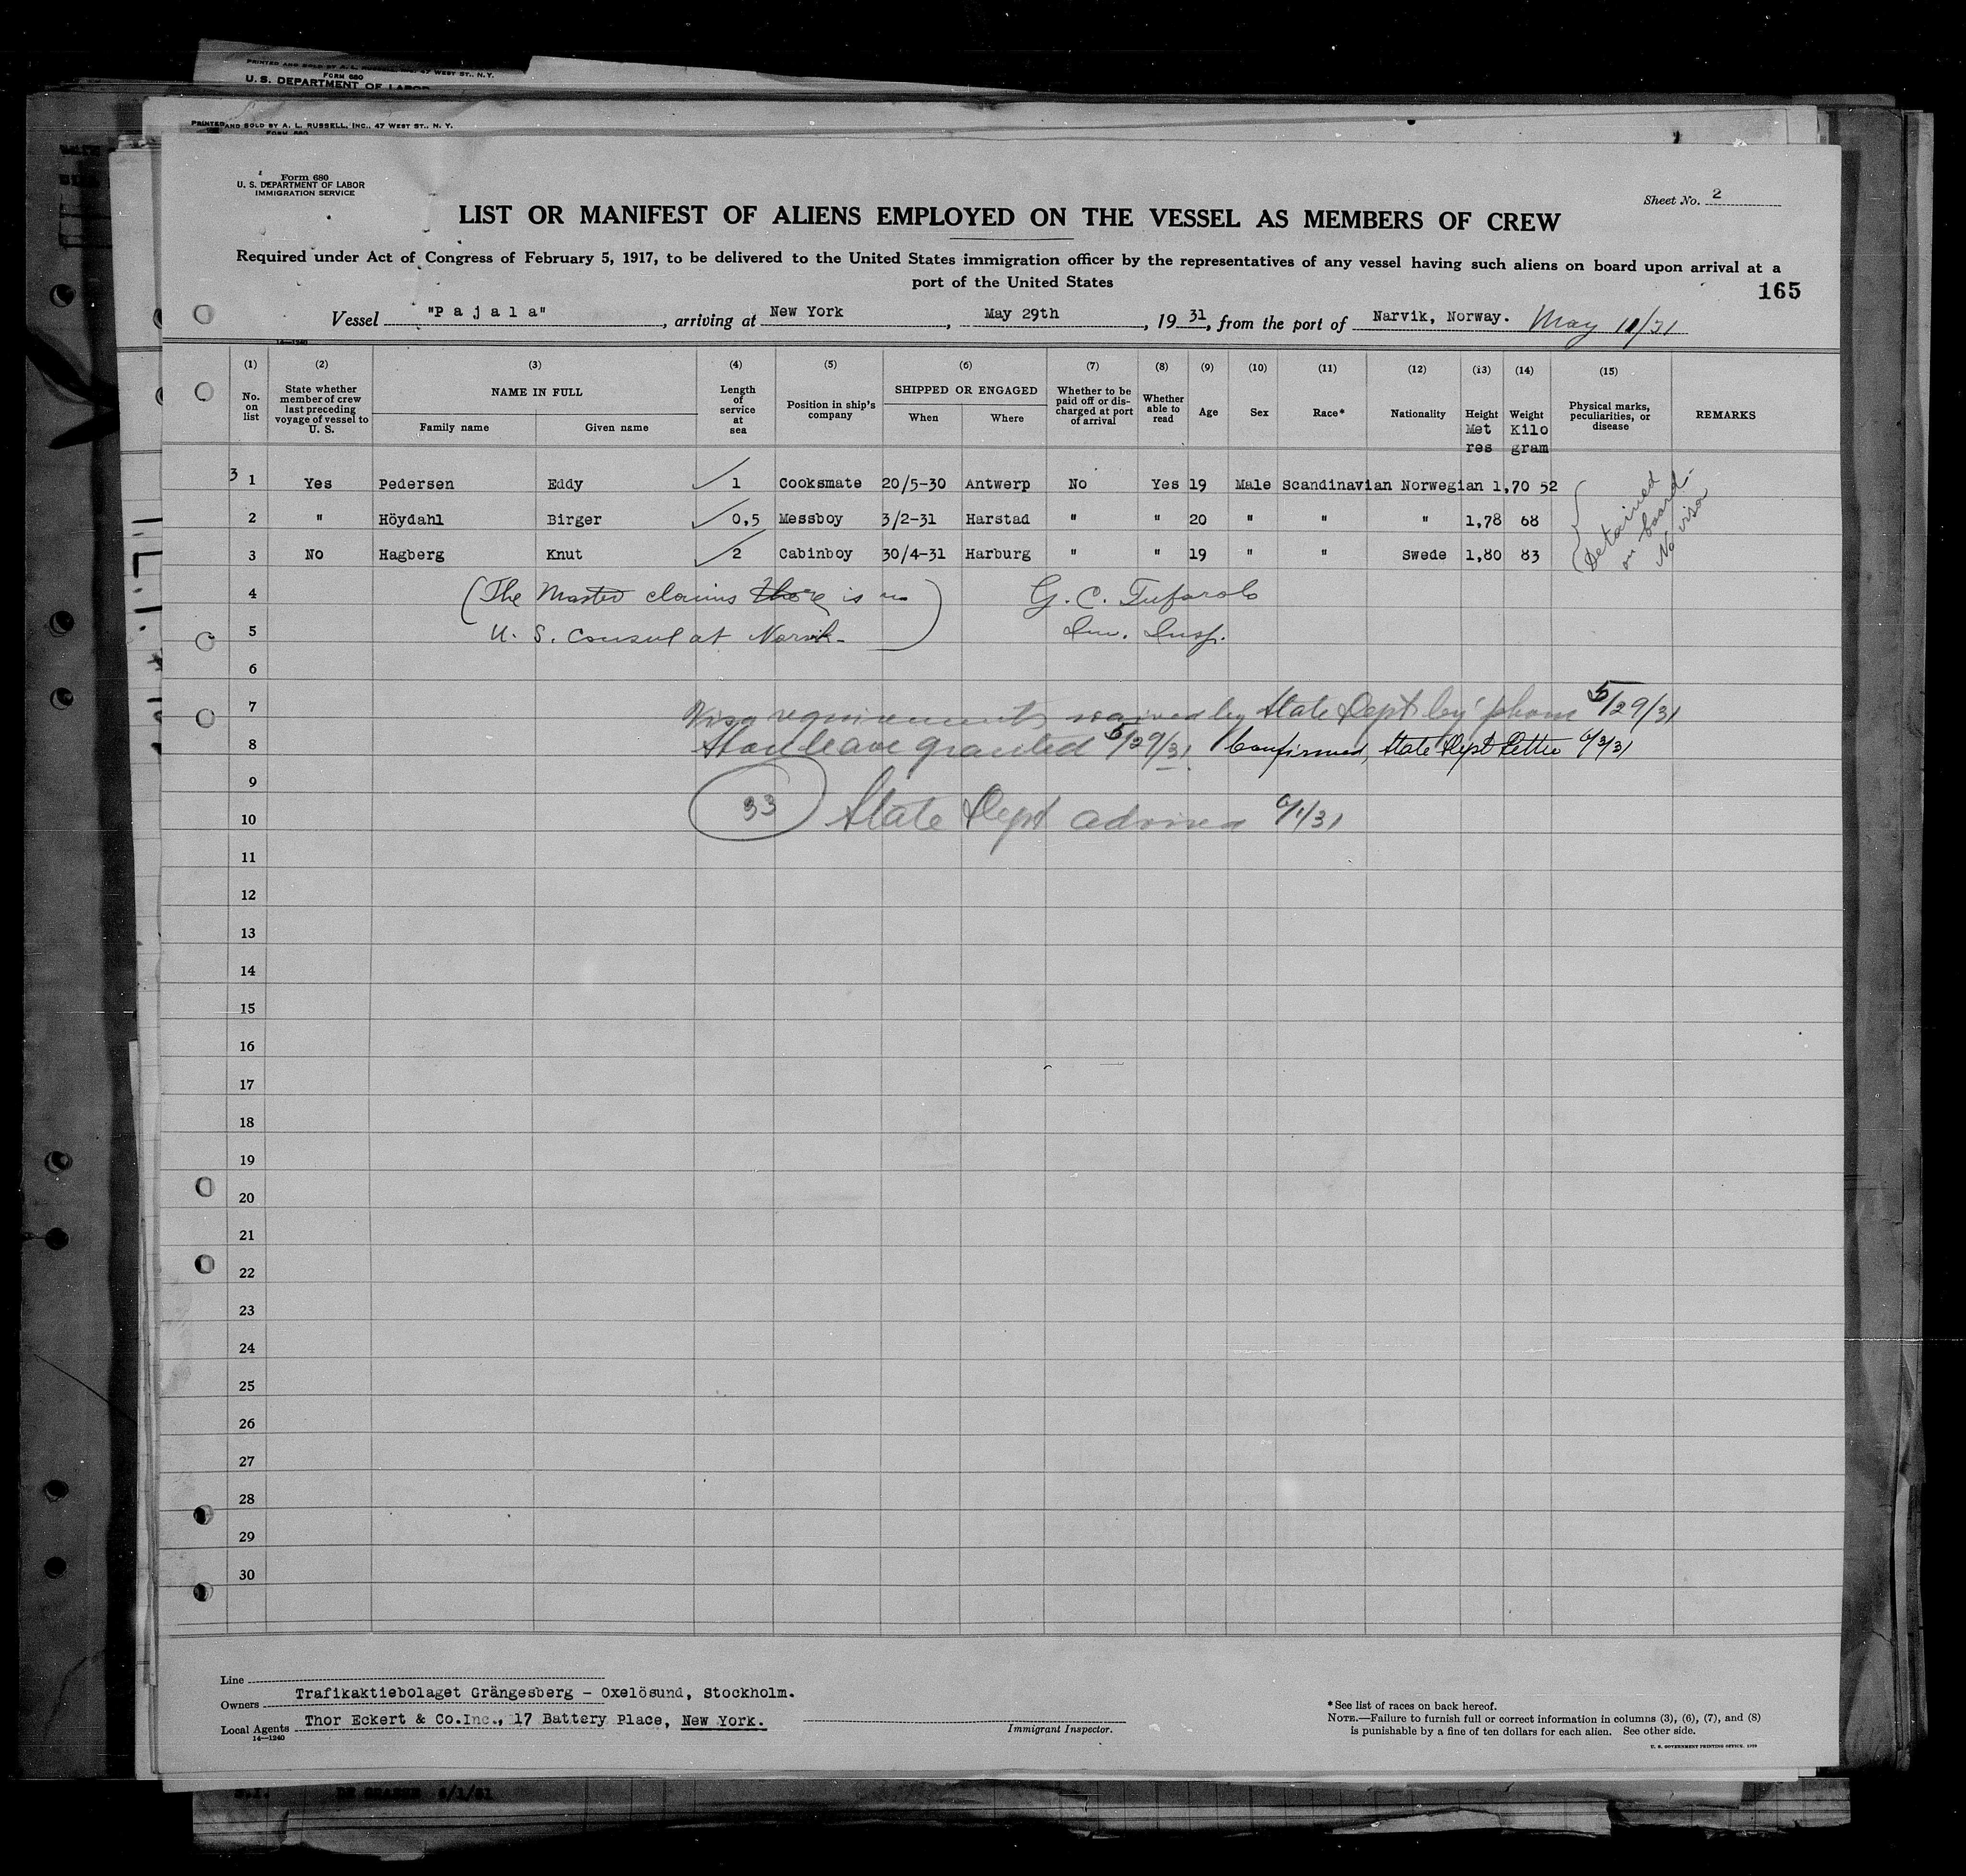 PRINTED AND SOLD BY A. L. RUSSELL, INC., 47 WEST ST., N.Y.
FORM 680
U. S. DEPARTMENT OF LABOR
PRINTED AND SOLD BY A. L. RUSSELL, INC., 47 WEST ST., N. Y.
FORM 680
Form 680
U. S. DEPARTMENT OF LABOR
IMMIGRATION SERVICE
Sheet No. 2
LIST OR MANIFEST OF ALIENS EMPLOYED ON THE VESSEL AS MEMBERS OF CREW
Required under Act of Congress of February 5, 1917, to be delivered to the United States immigration officer by the representatives of any vessel having such aliens on board upon arrival at a
port of the United States
165
Vessel "Pajala", arriving at New York, May 29th, 1931, from the port of Narvik, Norway. May 11/31
14—1240
(1) (2) (3) (4) (5) (6) (7) (8) (9) (10) (11) (12) (13) (14) (15)
No. on list State whether member of crew last preceding voyage of vessel to U. S. NAME IN FULL Family name Given name Length of service at sea Position in ship's company SHIPPED OR ENGAGED When Where Whether to be paid off or discharged at port of arrival Whether able to read Age Sex Race* Nationality Height Metres Weight Kilogram Physical marks, peculiarities, or disease REMARKS
3 1 Yes Pedersen Eddy 1 Cooksmate 20/5-30 Antwerp No Yes 19 Male Scandinavian Norwegian 1,70 52
2 " Höydahl Birger 0,5 Messboy 3/2-31 Harstad " " 20 " " " 1,78 68
3 No Hagberg Knut 2 Cabinboy 30/4-31 Harburg " " 19 " " Swede 1,80 83
Detained
on board-
No visa
4 (The Master claims there is no G. C. Tufarolo
5 U. S. Consul at Narvik-) Im. Insp.
6
7 Visa requirements waived by State Dept by phone 5/29/31
8 Shore leave granted 5/29/31 Confirmed, State Dept Letter 6/3/31
9
10 33 State Dept advised 6/1/31
11
12
13
14
15
16
17
18
19
20
21
22
23
24
25
26
27
28
29
30
Line
Owners Trafikaktiebolaget Grängesberg - Oxelösund, Stockholm.
Local Agents Thor Eckert & Co.Inc., 17 Battery Place, New York.
14—1240
Immigrant Inspector.
*See list of races on back hereof.
NOTE.—Failure to furnish full or correct information in columns (3), (6), (7), and (8)
is punishable by a fine of ten dollars for each alien. See other side.
U. S. GOVERNMENT PRINTING OFFICE: 1929
DE GRASSE 6/1/31